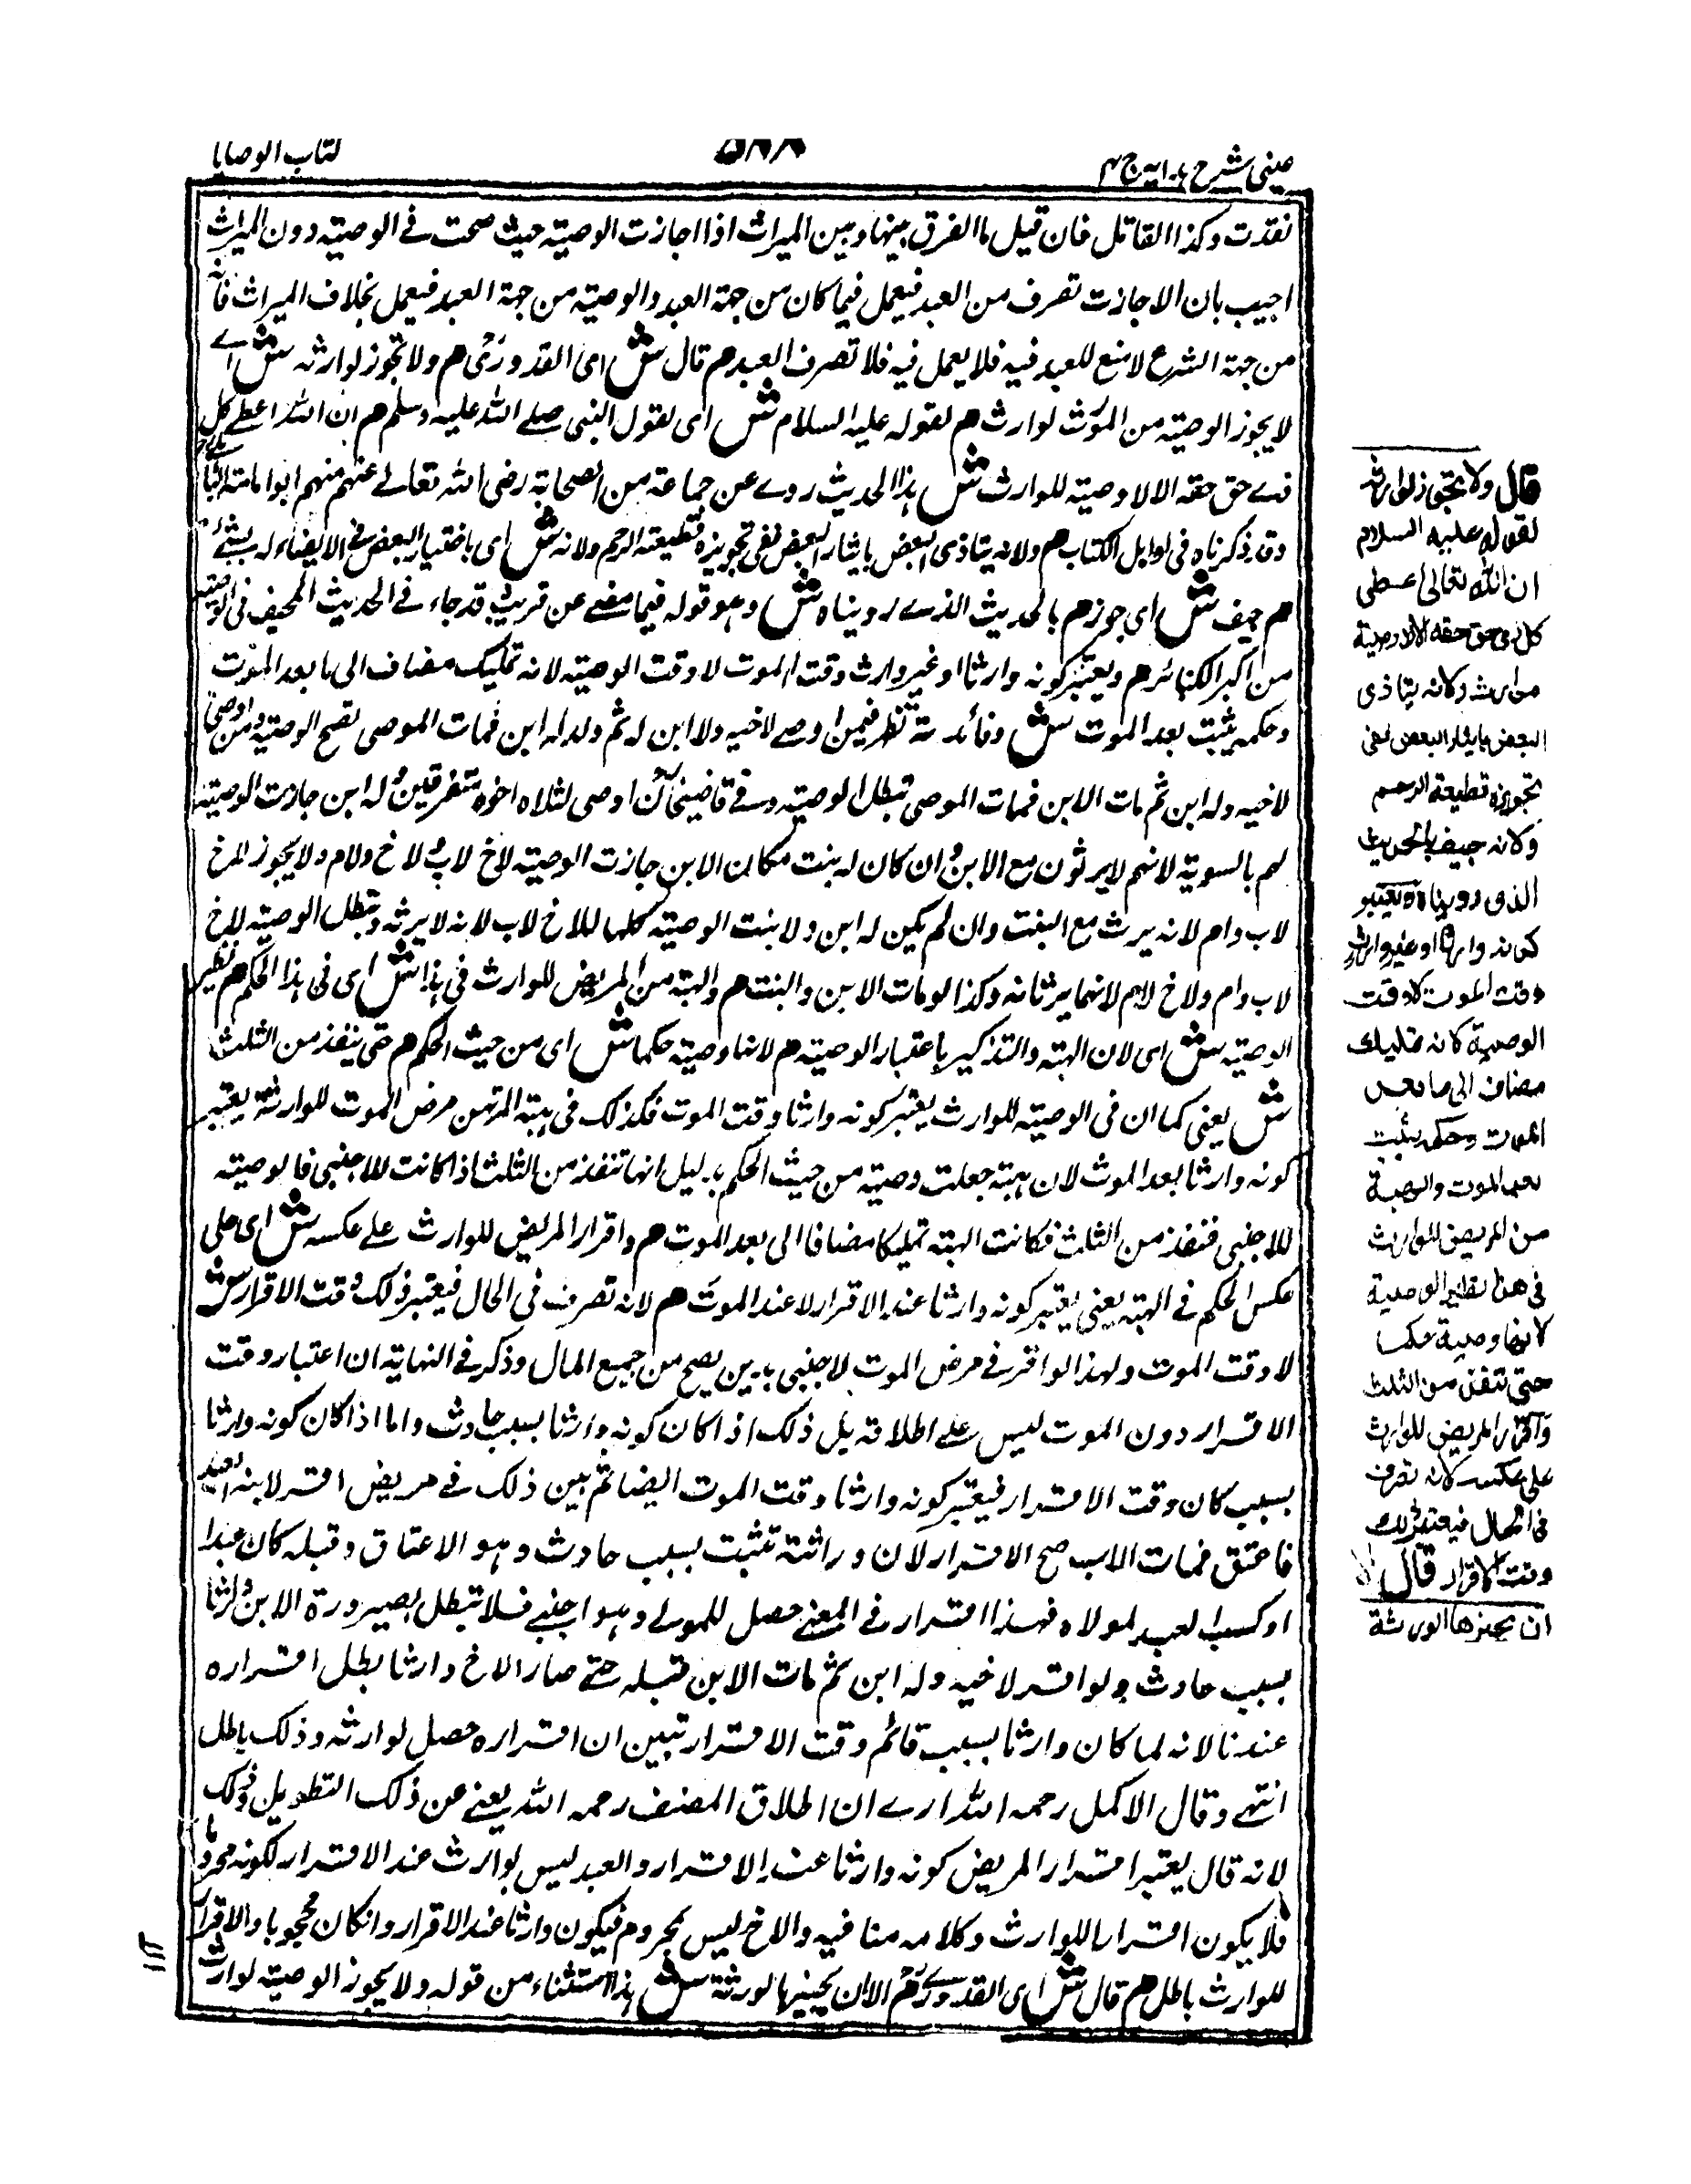 عینی شرح ہدایہ ج ۴
کتاب الوصایا
نفذت وکذا القاتل فان قیل ما الفرق بینہا وبین المیراث اذا اجازت الوصیتہ حیث صحت فے الوصیتہ دون المیراث
اجیب بان الاجازت تصرف من العبد فیعمل فیما کان من جہۃ العبد والوصیتہ من جہۃ العبد فیعمل بخلاف المیراث فانہ
من جہۃ الشرع لا صنع للعبد فیہ فلا یعمل فیہ فلا تصرف العبد م قال ش ای القدوری م ولا تجوز لوارثہ ش اے
لا یجوز الوصیتہ من المورث لوارث م لقولہ علیہ السلام ش ای لقول النبی صلے اللہ علیہ وسلم م ان اللہ اعطے کل
ذے حق حقہ الا لا وصیتہ للوارث ش ہذا الحدیث روے عن جماعۃ من الصحابۃ رضی اللہ تعالے عنہم منہم ابو امامتہ
وقد ذکرناہ فی اوایل الکتاب م ولانہ یتاذی البعض بایثار البعض ففی تجویزہ قطیعتہ الرحم ولانہ ش ای باختیار البعض فی الایضاء لہ بشئے
م حیف ش ای جوز م بالحدیث الذے رویناہ ش وہو قولہ فیما مضے عن قریب قد جاء فے الحدیث الحیف فی الوصیتہ
من اکبر الکبائر م ویعتبر کونہ وارثا او غیر وارث وقت الموت لا وقت الوصیتہ لانہ تملیک مضاف الی ما بعد الموت
وحکمہ یثبت بعد الموت ش وفائدتہ تظہر فیمن اوصے لاخیہ ولا ابن لہ ثم ولد لہ ابن فمات الموصی تصح الوصیتہ ومن اوصی
لاخیہ ولہ ابن ثم مات الابن فمات الموصی تبطل الوصیتہ وفے قاضیخان اوصی لثلاہ اخوہ متفرقین ولہ ابن جازت الوصیتہ
لہم بالسویۃ لانہم لا یرثون مع الابن وان کان لہ بنت مکان الابن جازت الوصیتہ لاخ لاب ولاخ ولام ولا یجوز للاخ
لاب وام لانہ یرث مع البنت وان لم یکین لہ ابن ولا بنت الوصیتہ کلہا للاخ لاب لانہ لا یرثہ وتبطل الوصیتہ لاخ
لاب وام ولاخ لام لانہما یرثانہ وکذا لو مات الابن والبنت م والہبتہ من المریض للوارث فی ہذا ش ای فی ہذا الحکم م نظیر
الوصیتہ ش ای لان الہبتہ والتذکیر باعتبار الوصیتہ م لانہا وصیتہ حکما ش ای من حیث الحکم م حتی ینفذ من الثلث
ش یعنی کما ان فی الوصیتہ للوارث یعتبر کونہ وارثا وقت الموت فکذلک فی ہبتہ المرتہن مرض الموت للوارثہ یعتبر
کونہ وارثا بعد الموت لان ہبتہ جعلت وصیتہ من حیث الحکم بدلیل انہا تنفذ من الثلث اذا کانت للاجنبی فالوصیتہ
للاجنبی فتنفذ من الثلث فکانت الہبتہ تملیکا مضافا الی بعد الموت م واقرار المریض للوارث علے عکسہ ش ای علی
عکس الحکم فے الہبتہ یعنی یعتبر کونہ وارثا عند الاقرار لا عند الموت م لانہ تصرف فی الحال فیعتبر ذلک وقت الاقرار ش
لا وقت الموت ولہذا لو اقر فے مرض الموت لاجنبی بدین یصح من جمیع المال وذکر فے النہایتہ ان اعتبار وقت
الاقرار دون الموت لیس علے اطلاقہ بل ذلک اذا کان کونہ وارثا بسبب حادث واما اذا کان کونہ وارثا
بسبب کان وقت الاقرار فیعتبر کونہ وارثا وقت الموت ایضا ثم بین ذلک فے مریض اقر لابنہ العبد
فاعتق فمات الاب صح الاقرار لان وراثتہ تثبت بسبب حادث وہو الاعتاق وقبلہ کان عبدا
او کسب العبد لمولاہ فہذا اقرار فے المعنے حصل للمولے وہو اجنبے فلا تبطل بصیرورۃ الابن وارثا
بسبب حادث ولو اقر لاخیہ ولہ ابن ثم مات الابن قبلہ حتے صار الاخ وارثا بطل اقرارہ
عندنا لانہ لما کان وارثا بسبب قائم وقت الاقرار تبین ان اقرارہ حصل لوارثہ وذلک باطل
انتہے وقال الاکمل رحمہ اللہ ارے ان اطلاق المصنف رحمہ اللہ یغنے عن ذلک التطویل وذلک
لانہ قال یعتبر اقرار المریض کونہ وارثا عند الاقرار والعبد لیس بوارث عند الاقرار لکونہ محروما
فلا یکون اقرارا للوارث وکلامہ منا فیہ والاخ لیس بمحروم فیکون وارثا عند الاقرار وانکان محجوبا والاقرار
للوارث باطل م قال ش ای القدوری م الا ان یجیزہا الورثۃ ش ہذا استثناء من قولہ ولا یجوز الوصیتہ لوارث
قال ولا تجوز لوارثہ
لقولہ علیہ السلام
ان اللہ تعالی اعطی
کل ذی حق حقہ الا لا وصیۃ
لوارث ولانہ یتاذی
البعض بایثار البعض ففی
تجویزہ قطیعۃ الرحم
ولانہ حیف بالحدیث
الذی رویناہ ویعتبر
کونہ وارثا او غیر وارث
وقت الموت لا وقت
الوصیۃ لانہ تملیک
مضاف الی ما بعد
الموت وحکمہ یثبت
بعد الموت والہبۃ
من المریض للوارث
فی ھذا نظیر الوصیۃ
لانھا وصیۃ حکما
حتی تنفذ من الثلث
واقرار المریض للوارث
علی عکسہ لانہ تصرف
فی الحال فیعتبر ذلک
وقت الاقرار قال الا
ان یجیزھا الورثۃ